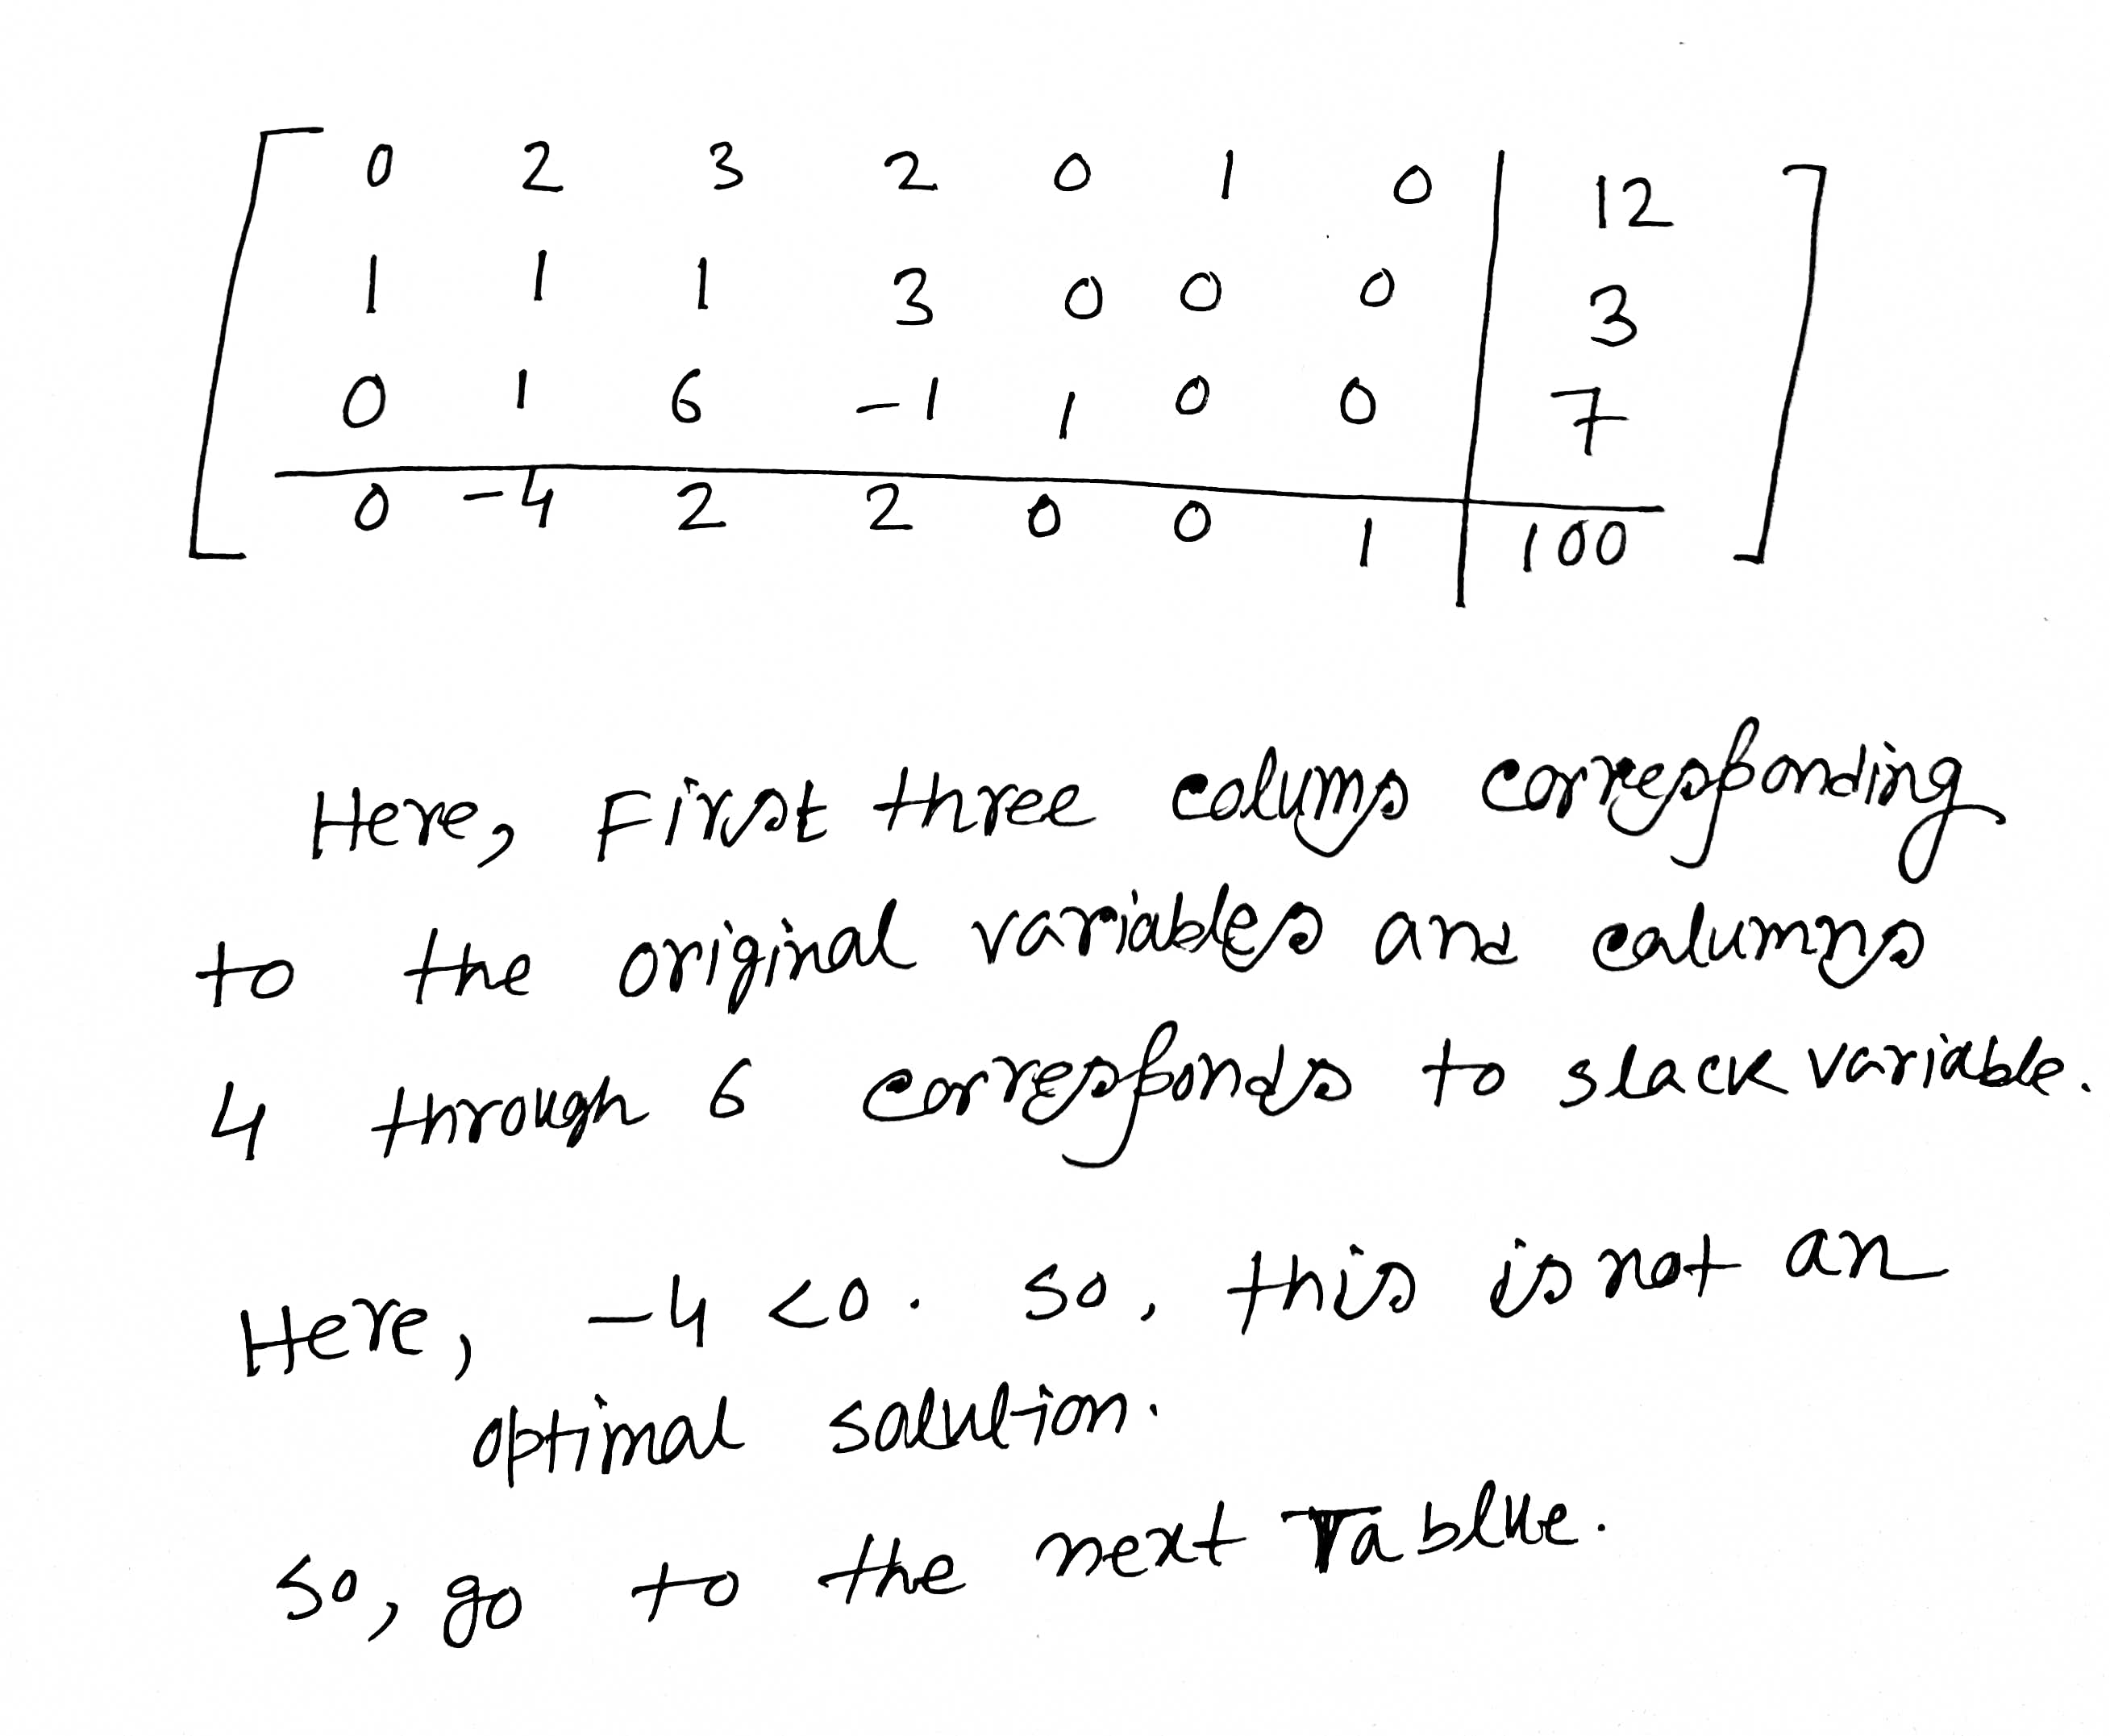 0 2 3 2 0 1 0 12
1 1 1 3 0 0 0 3
0 1 6 -1 1 0 0 7
0 -4 2 2 0 0 1 100
Here, First three colums corresponding
to the original variables and columns
4 through 6 corresponds to slack variable.
Here, -4 <0. so, this is not an
optimal solution.
so, go to the next Tablue.